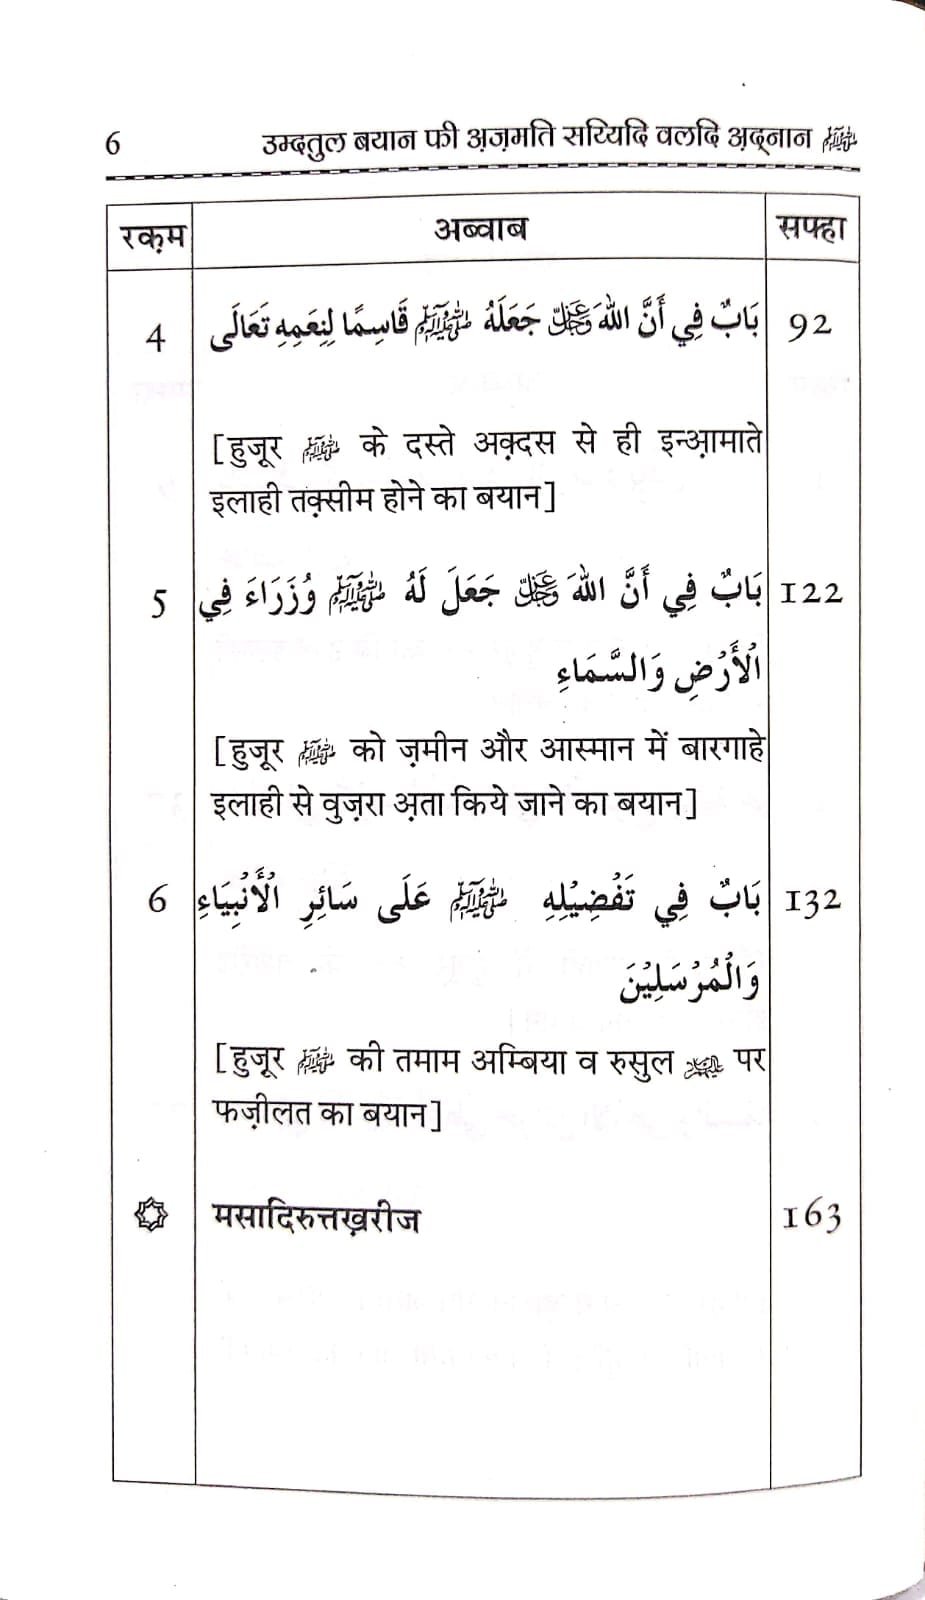 6 उम्दतुल बयान फी अ़ज़मति सय्यिदि वलदि अ़द्नान ﷺ
रक़म अब्वाब सफ्हा
4 بَابٌ فِي أَنَّ اللهَ عَزَّوَجَلَّ جَعَلَهُ ﷺ قَاسِمًا لِنِعَمِهِ تَعَالَى 92
[हुजूर ﷺ के दस्ते अक़्दस से ही इन्आ़माते
इलाही तक़्सीम होने का बयान]
5 بَابٌ فِي أَنَّ اللهَ عَزَّوَجَلَّ جَعَلَ لَهُ ﷺ وُزَرَاءَ فِي 122
الْأَرْضِ وَالسَّمَاءِ
[हुजूर ﷺ को ज़मीन और आस्मान में बारगाहे
इलाही से वुज़रा अ़ता किये जाने का बयान]
6 بَابٌ فِي تَفْضِيْلِهِ ﷺ عَلَى سَائِرِ الْأَنْبِيَاءِ 132
وَالْمُرْسَلِيْنَ
[हुजूर ﷺ की तमाम अम्बिया व रुसुल पर
फज़ीलत का बयान]
मसादिरुत्तख़रीज 163